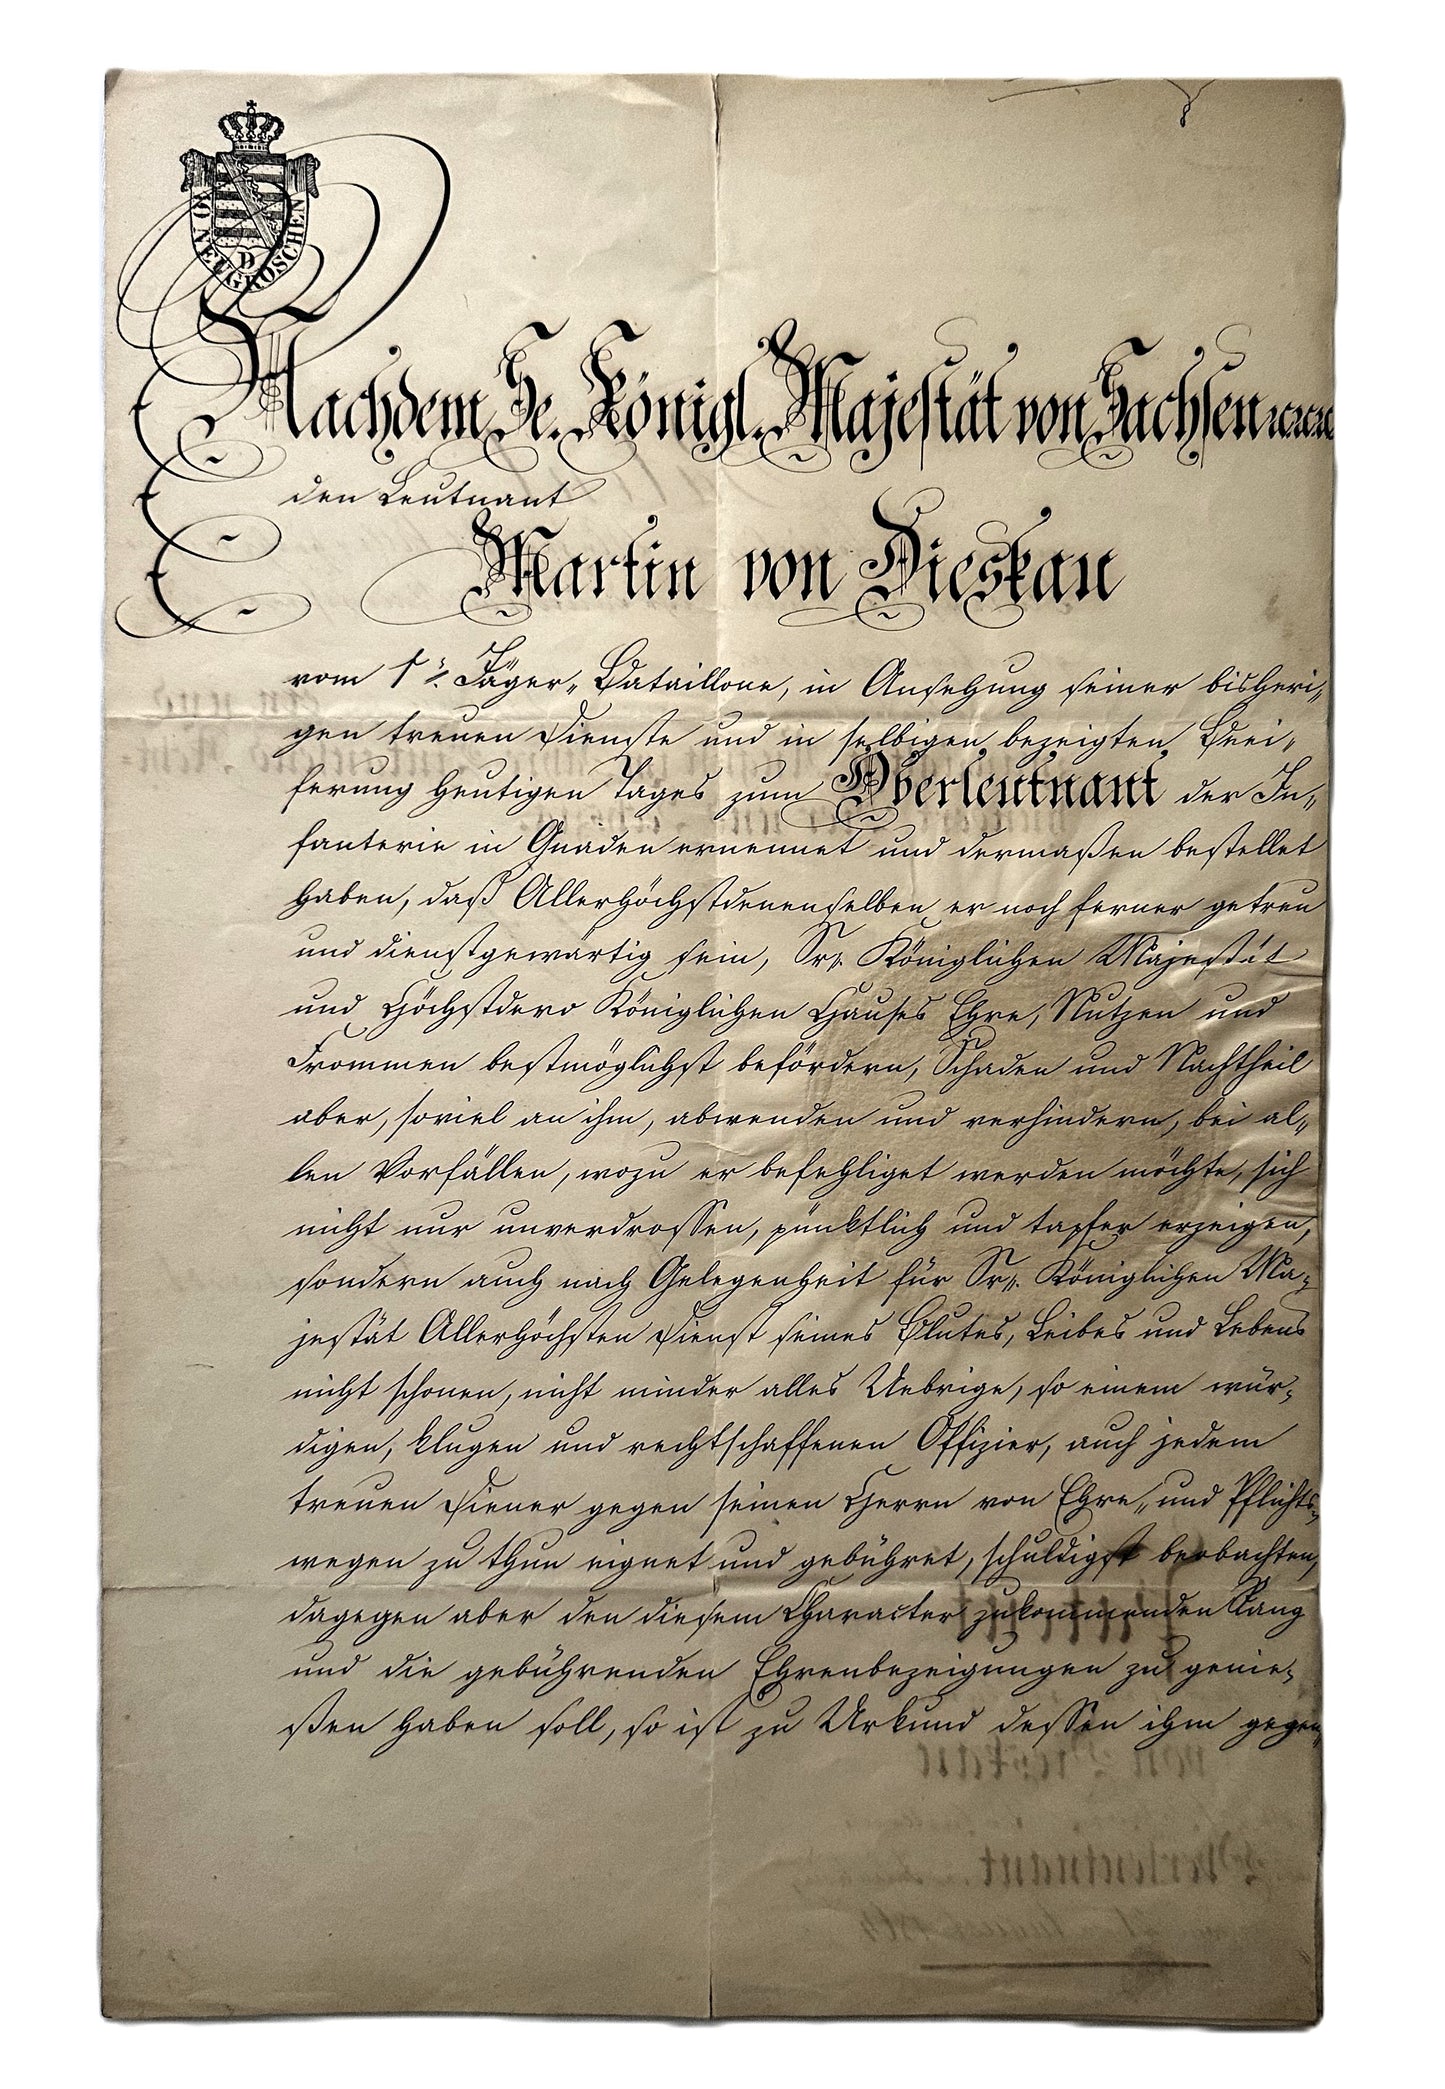 10 NEUGROSCHEN
D
Nachdem Se. Königl. Majestät von Sachsen ꝛc ꝛc ꝛc
den Leutnant
Martin von Dieskau
vom 1n. Jäger-Bataillone, in Ansehung seiner bisheri-
gen treuen Dienste und in selbigen bezeigten Beei-
ferung heutigen Tages zum Oberleutnant der In-
fanterie in Gnaden ernennet und dermaßen bestellet
haben, daß Allerhöchstdenenselben er noch ferner getreu
und dienstgewärtig sein, Sr. Königlichen Majestät
und Höchstdero Königlichen Hauses Ehre, Nutzen und
Frommen bestmöglichst befördern, Schaden und Nachtheil
aber, soviel an ihm, abwenden und verhindern, bei al-
len Vorfällen, wozu er befehliget werden möchte, sich
nicht nur unverdrossen, pünktlich und tapfer erzeigen,
sondern auch nach Gelegenheit für Sr. Königlichen Ma-
jestät Allerhöchsten Dienst seines Blutes, Leibes und Lebens
nicht schonen, nicht minder alles Uebrige, so einem wür-
digen, klugen und rechtschaffenen Offizier, auch jedem
treuen Diener gegen seinen Herrn von Ehre- und Pflichts-
wegen zu thun eignet und gebühret, schuldigst beobachten,
dagegen aber den diesem Character zukommenden Rang
und die gebührenden Ehrenbezeigungen zu genie-
ßen haben soll, so ist zu Urkund dessen ihm gegen-